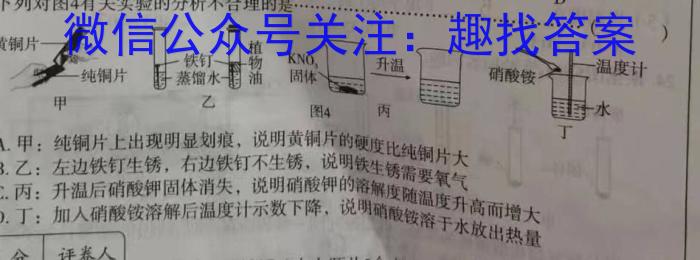 下列对图4有关实验的分析不合理的是
微信公众号关注：趣找答案
( )
黄铜片
纯铜片
铁钉
蒸馏水
植物油
KNO₃
固体
升温
硝酸铵
温度计
水
甲
乙
图4
丙
丁
A. 甲：纯铜片上出现明显划痕，说明黄铜片的硬度比纯铜片大
B. 乙：左边铁钉生锈，右边铁钉不生锈，说明铁生锈需要氧气
C. 丙：升温后硝酸钾固体消失，说明硝酸钾的溶解度随温度升高而增大
D. 丁：加入硝酸铵溶解后温度计示数下降，说明硝酸铵溶于水放出热量
分 评卷人